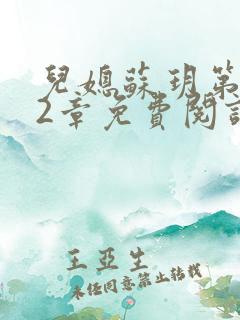 兒媳蘇玥第
2章免費閱讀
王亞生
未經同意禁止轉載